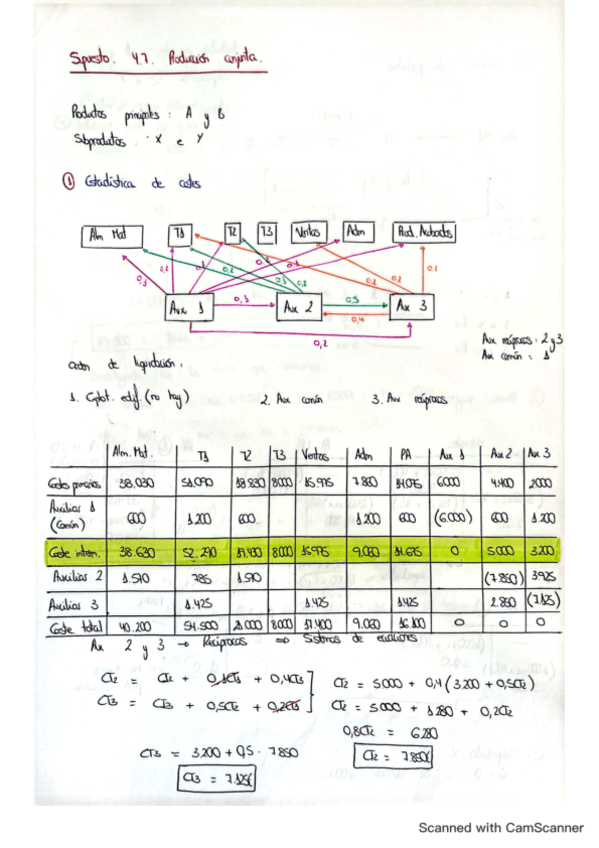 Supuesto. 4.7. Producción conjunta.
Productos principales: A y B
Subproductos. X e Y
① Estadística de costes
Alm Mat
T1
T2
T3
Ventas
Adm
Prod. Acabados
0,1
0,2
0,2
0,2
0,2
0,2
Aux. 1
0,3
Aux 2
0,5
0,4
Aux 3
0,2
Aux recíprocos: 2 y 3
Aux común: 1
Orden de liquidación:
1. Cptot. edif. (no hay)
2. Aux común
3. Aux recíprocos
Alm. Mat. T1 T2 T3 Ventas Adm PA Aux 1 Aux 2 Aux 3
Costes primarios 38.030 51.090 8000 15.975 7.880 14.075 6000 4.400 2000
Auxiliar 1 (Común) 600 1.200 600 1.200 600 (6.000) 600 1.200
Coste interm. 38.630 52.290 8000 15.975 0 5.000 3.200
Auxiliar 2 1.570 785 1.570 (7.850) 3925
Auxiliar 3 1.425 1.425 1.425 2.850 (7.125)
Coste total 40.200 54.500 8000 17.400 16.100 0 0 0
Aux 2 y 3 → Recíprocos ⇒ Sistema de ecuaciones
CT2 = CI2 + 0,1CT2 + 0,4CT3
CT3 = CI3 + 0,5CT2 + 0,2CT3
CT2 = 5000 + 0,4 (3.200 + 0,5CT2)
CT2 = 5000 + 1.280 + 0,2CT2
0,8CT2 = 6.280
CT2 = 7.850€
CT3 = 3.200 + 0,5 · 7.850
CT3 = 7.125€
Scanned with CamScanner